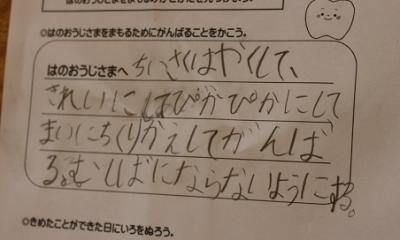 ○はのおうじさまをまもるためにがんばることをかこう。
はのおうじさまへ ちいさくはやくして、
きれいにはぴかぴかにして
まいにちくりかえしてがんば
る。むしばにならないようにする。
○きめたことができた日にいろをぬろう。